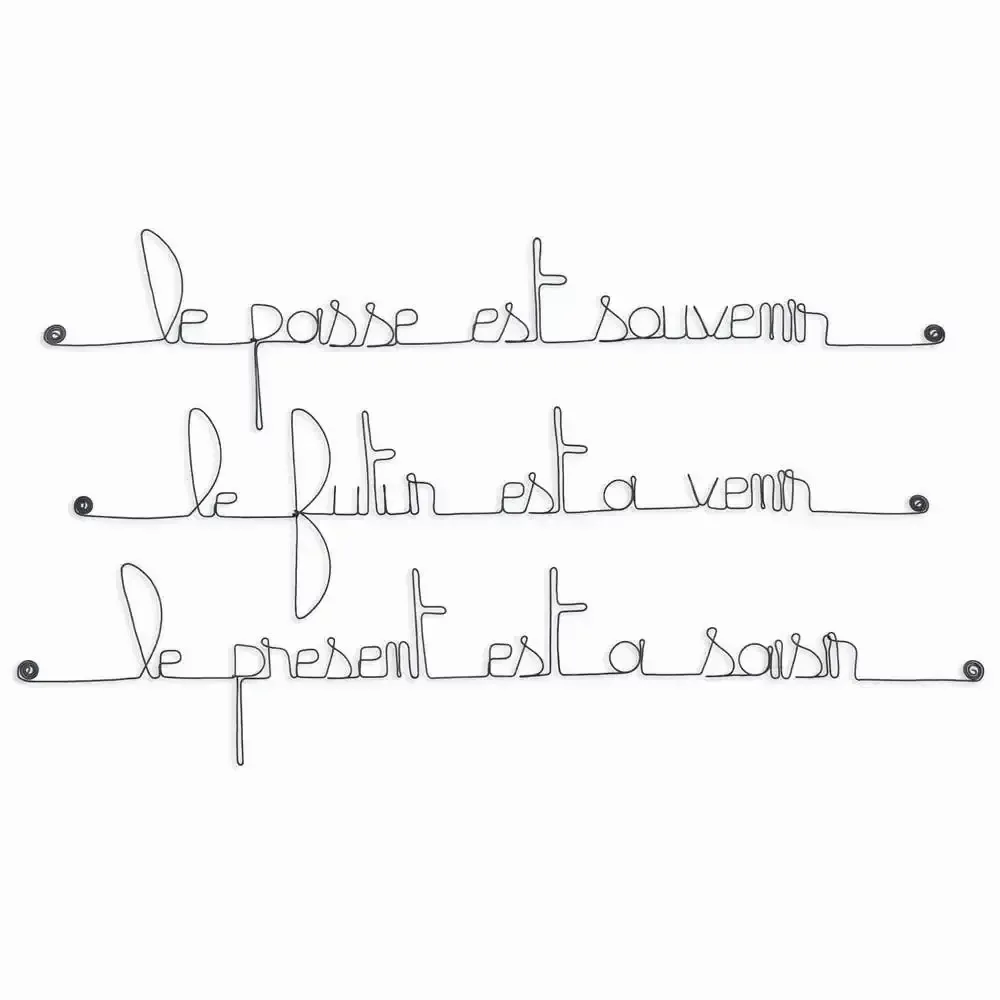 le passe est souvenir
le futur est a venir
le present est a saisir